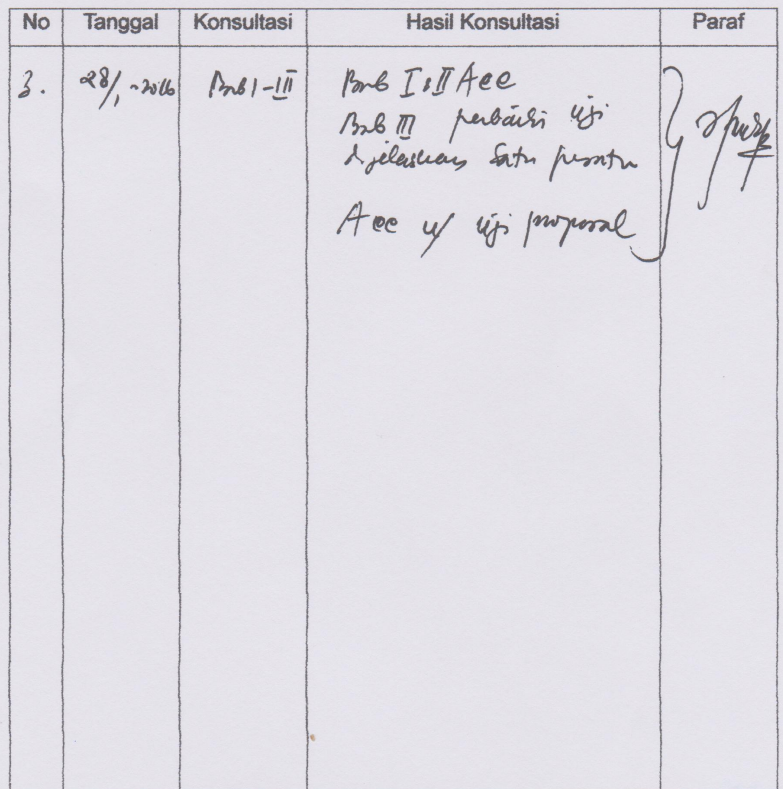 No Tanggal Konsultasi Hasil Konsultasi Paraf
3. 28/1-2016 Bab I-III Bab I & II Acc
Bab III perbaiki uji
dijelaskan satu persatu
Acc u/ uji proposal